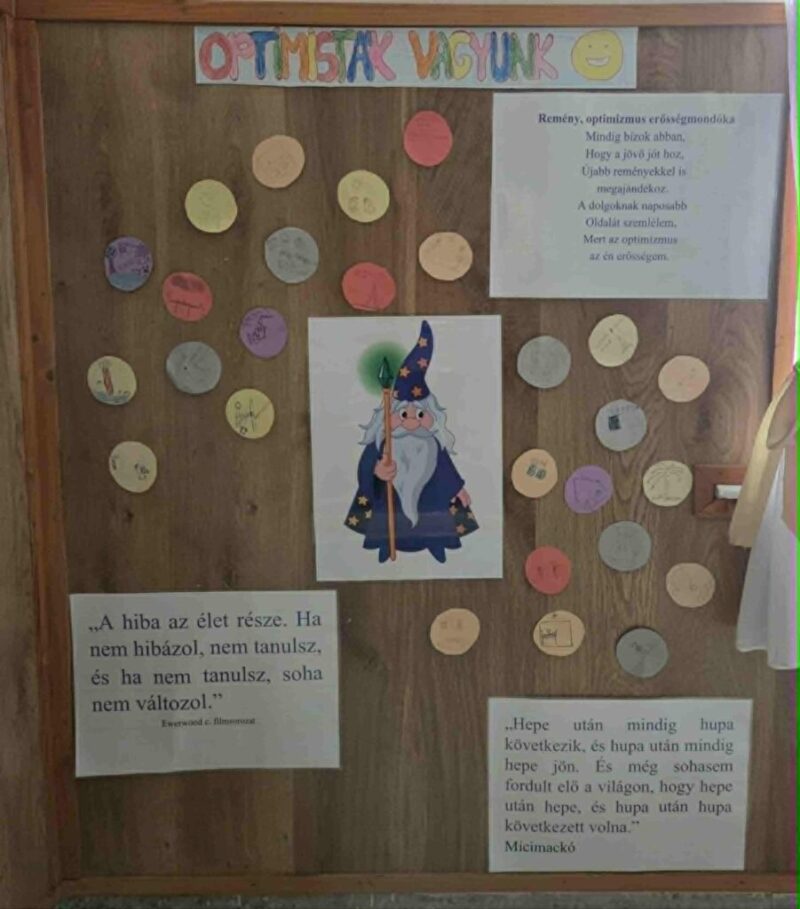 OPTIMISTÁK VAGYUNK
Remény, optimizmus erősségmondóka
Mindig bízok abban,
Hogy a jövő jót hoz,
Újabb reményekkel is
megajándékoz.
A dolgoknak naposabb
Oldalát szemlélem,
Mert az optimizmus
az én erősségem.
„A hiba az élet része. Ha
nem hibázol, nem tanulsz,
és ha nem tanulsz, soha
nem változol.”
Ewerwood c. filmsorozat
„Hepe után mindig hupa
következik, és hupa után mindig
hepe jön. És még sohasem
fordult elő a világon, hogy hepe
után hepe, és hupa után hupa
következett volna.”
Micimackó